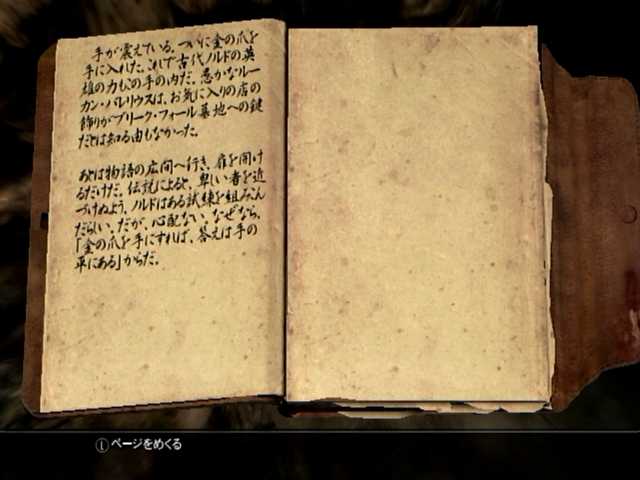 手が震えている。ついに金の爪を
手に入れた。これで古代ノルドの英
雄の力もこの手の内だ。愚かなルー
カン・バレリウスは、お気に入りの店の
飾りがブリーク・フォール墓地への鍵
だとは知る由もなかった。
あとは物語の広間へ行き、扉を開け
るだけだ。伝説によると、卑しい者を近
づけぬよう、ノルドはある試練を組みこん
だらしい。だが、心配ない。なぜなら、
「金の爪を手にすれば、答えは手の
平にある」からだ。
Ⓛ ページをめくる